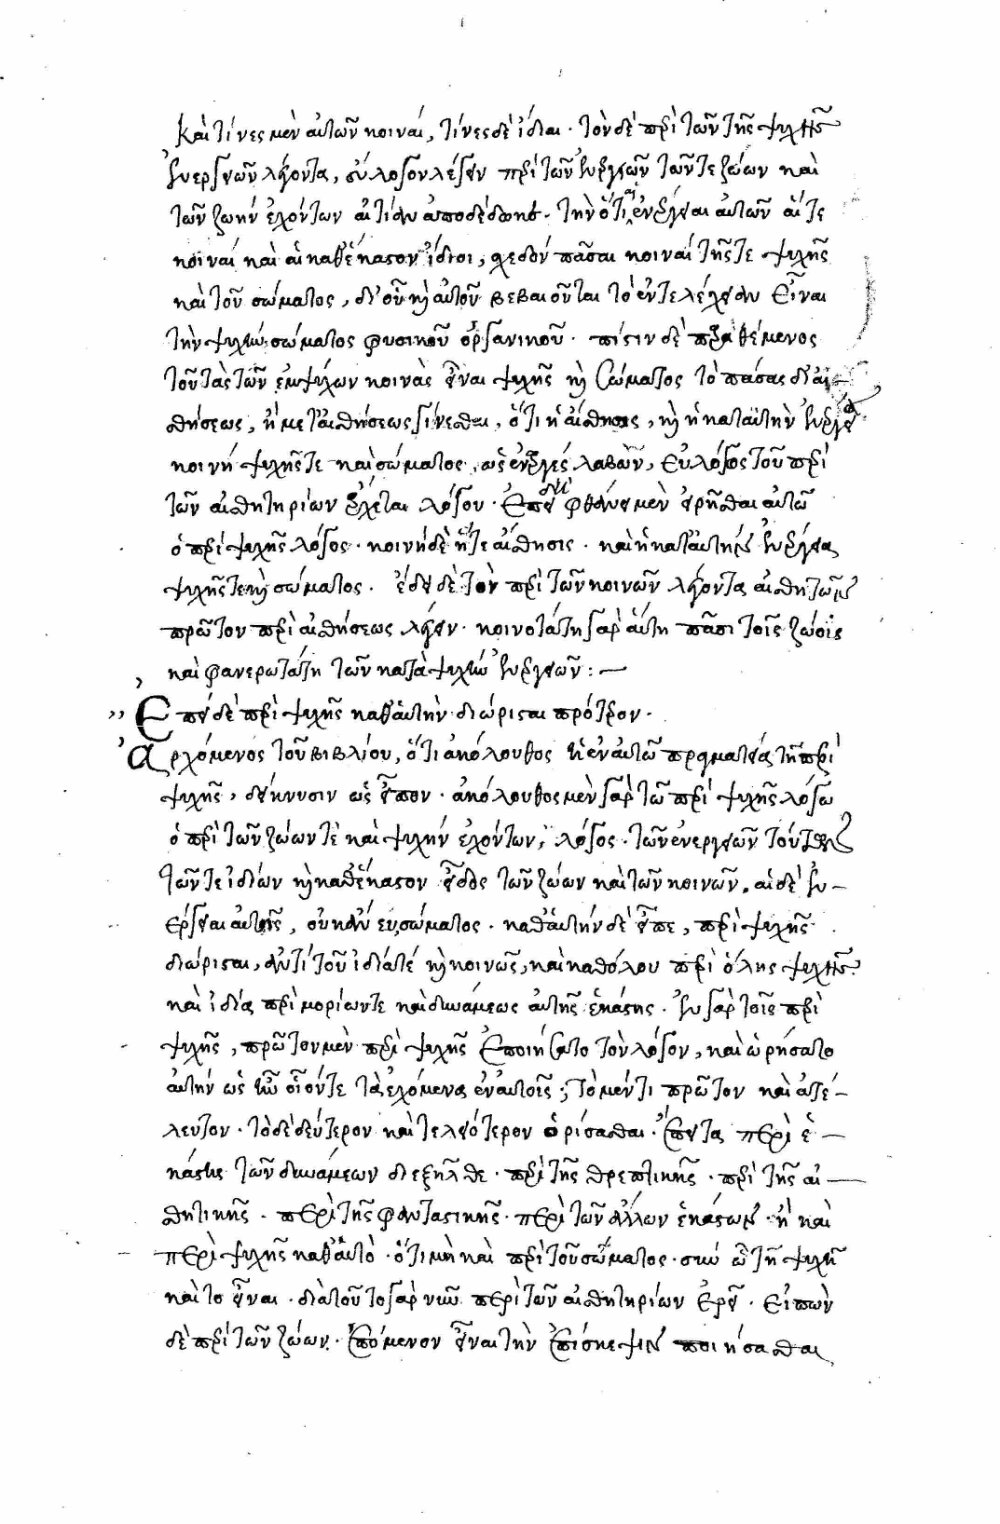 καὶ τίνες μὲν αὐτῶν κοιναί, τίνες δὲ ἴδιαι. τὸν δὲ περὶ τῶν τῆς ψυχῆς
ἐνεργειῶν λέγοντα, εὔλογον λέγειν περὶ τῶν ἐνεργειῶν τῶν τε ζώων καὶ
τῶν ζωὴν ἐχόντων αἰτίαν ἀποδέδωκε. τὴν ὅτι αἱ ἐνέργειαι αὐτῶν αἵ τε
κοιναὶ καὶ αἱ καθέκαστον ἴδιοι, σχεδὸν πᾶσαι κοιναὶ τῆς τε ψυχῆς
καὶ τοῦ σώματος, δι' οὗ καὶ αὐτοῦ βεβαιοῦται τὸ ἐντελέχειαν εἶναι
τὴν ψυχὴν σώματος φυσικοῦ ὀργανικοῦ. πίστιν δὲ παραθέμενος
τοῦ τὰς τῶν ἐμψύχων κοινὰς εἶναι ψυχῆς καὶ σώματος τὸ πάσας δι' αἰ-
σθήσεως, ἢ μετ' αἰσθήσεως γίνεσθαι, ὅτι ἡ αἴσθησις, καὶ ἡ κατ' αὐτὴν ἐνέργεια
κοινὴ ψυχῆς τε καὶ σώματος, ὡς ἐναργὲς λαβών, εὐλόγως τοῦ περὶ
τῶν αἰσθητηρίων ἔχεται λόγου. ἐπεὶ φθάνει μὲν εἰρῆσθαι αὐτῶ
ὁ περὶ ψυχῆς λόγος. κοινὴ δὲ ἥ τε αἴσθησις. καὶ ἡ κατ' αὐτὴν ἐνέργεια
ψυχῆς τε καὶ σώματος. ἔδει δὲ τὸν περὶ τῶν κοινῶν λέγοντα αἰσθητῶν
πρῶτον περὶ αἰσθήσεως λέγειν. κοινοτάτη γὰρ αὕτη πᾶσι τοῖς ζώοις
καὶ φανερωτάτη τῶν κατὰ ψυχὴν ἐνεργειῶν: —
Ἐπεὶ δὲ περὶ ψυχῆς καθ' αὑτὴν διώρισται πρότερον.
Ἀρχόμενος τοῦ βιβλίου, ὅτι ἀκόλουθος ἡ ἐν αὐτῶ πραγματεία τῆ περὶ
ψυχῆς, δείκνυσιν ὡς εἶπον. ἀκόλουθος μὲν γὰρ τῶ περὶ ψυχῆς λόγω
ὁ περὶ τῶν ζώων τὲ καὶ ψυχὴν ἐχόντων, λόγος. τῶν ἐνεργειῶν τούτων
τῶν τε ἰδίων καὶ καθέκαστον εἶδος τῶν ζώων καὶ τῶν κοινῶν. αἱ δὲ ἐν-
έργειαι αὐτῆς, οὐκ ἄνευ σώματος. καθ' αὑτὴν δὲ εἶπε, περὶ ψυχῆς
διώρισται, ἀντὶ τοῦ ἰδία τὲ καὶ κοινῶς, καὶ καθόλου περὶ ὅλης ψυχῆς
καὶ ἰδία περὶ μορίων τε καὶ δυνάμεως αὐτῆς ἑκάστης. ἐν γὰρ τοῖς περὶ
ψυχῆς, πρῶτον μὲν περὶ ψυχῆς ἐποιήσατο τὸν λόγον, καὶ ὡρήσατο
αὐτὴν ὡς ἦν οἷόν τε τὰ ἐχόμενα ἐν αὐτοῖς; τὸ μέν τι πρῶτον καὶ ἀτέ-
λευτον. τὸ δὲ δεύτερον καὶ τελειότερον ὁρίσασθαι. ἔπειτα περὶ ἑ-
κάστης τῶν δυνάμεων διεξῆλθε. περὶ τῆς θρεπτικῆς. περὶ τῆς αἰ-
σθητικῆς. περὶ τῆς φανταστικῆς. περὶ τῶν ἄλλων ἑκάστων. ἢ καὶ
περὶ ψυχῆς καθ' αὑτὸ. ὅτι μὴ καὶ περὶ τοῦ σώματος. σὺν ὧ τῆ ψυχῆ
καὶ τὸ εἶναι. διὰ τοῦτο γὰρ νῦν περὶ τῶν αἰσθητηρίων ἐρεῖ. εἰπὼν
δὲ περὶ τῶν ζώων. ἑπόμενον εἶναι τὴν ἐπίσκεψιν ποιήσασθαι